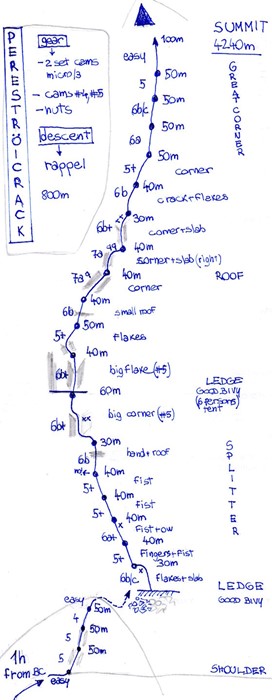 PERESTRÖICRACK
gear
- 2 set cams
micro/3
- cams #4, #5
- nuts
descent
rappel
800m
SUMMIT
4240m
100m
easy
GREAT CORNER
50m
5
50m
6b/c
50m
6a
50m
corner
5+
40m
6b
crack+flakes
30m
6b+
corner+slab
40m
7a
corner+slab (right)
40m
ROOF
7a
corner
40m
6b
small roof
50m
5+
flakes
40m
6b+
big flake (#5)
LEDGE
GOOD BIVY
(6 persons)
tent
60m
big corner (#5)
6b+
xx
30m
SPLITTER
6b
hand+roof
40m
5+
fist
40m
fist
5+
x
40m
fist+ow
6a+
40m
fingers+fist
30m
6b/c
x
flakes+slab
LEDGE
GOOD BIVY
easy
50m
4
50m
5
50m
5
easy
1h
from BC
SHOULDER